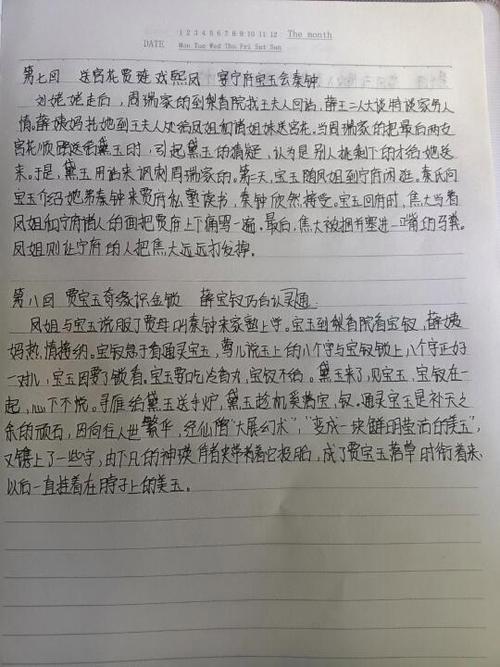 1 2 3 4 5 6 7 8 9 10 11 12 The month
DATE Mon Tue Wed Thu Fri Sat Sun
第七回 送宫花贾琏戏熙凤 宴宁府宝玉会秦钟
刘姥姥走后，周瑞家的到梨香院找王夫人回话，薛王二人大谈特谈家务人
情。薛姨妈托她到王夫人处给凤姐和诸姐妹送宫花。当周瑞家的把最后两支
宫花顺路送给黛玉时，引起黛玉的猜疑，认为是别人挑剩下的才给她送
来。于是，黛玉用话来讽刺周瑞家的。第二天，宝玉随凤姐到宁府闲逛。秦氏向
宝玉介绍她弟秦钟来贾府私塾读书，秦钟欣然接受。宝玉回府时，焦大当着
凤姐和宁府诸人的面把贾府上下痛骂一遍。最后，焦大被捆并塞进一嘴的马粪。
凤姐则让宁府的人把焦大远远打发掉。
第八回 贾宝玉奇缘识金锁 薛宝钗巧合认灵通
凤姐与宝玉说服了贾母叫秦钟来家塾上学。宝玉到梨香院看宝钗，薛姨
妈热情接纳。宝钗急于看通灵宝玉，莺儿说玉上的八个字与宝钗锁上八个字正好
一对儿，宝玉因要了锁看。宝玉要吃冷香丸，宝钗不给。黛玉来了，见宝玉，宝钗在一
起，心下不悦。寻雁给黛玉送手炉，黛玉趁机奚落宝，钗。通灵宝玉是补天之
余的顽石，因向往人世繁华，经仙僧“大展幻术”，“变成一块鲜明莹洁的美玉”，
又镌上了一些字，由下凡的神瑛侍者夹带着它投胎，成了贾宝玉落草时衔着来，
以后一直挂着在脖子上的美玉。